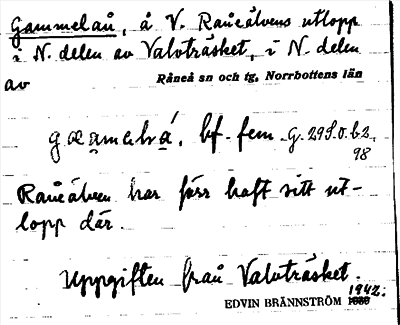 Gammelån, å V. Råneälvens utlopp
i N. delen av Valvträsket, i N. delen
av Råneå sn och tg, Norrbottens län
bf. fem. G. 29 S.
98
Råneälven har förr haft sitt ut-
lopp där.
Uppgiften från Valvträsket.
1942.
EDVIN BRÄNNSTRÖM